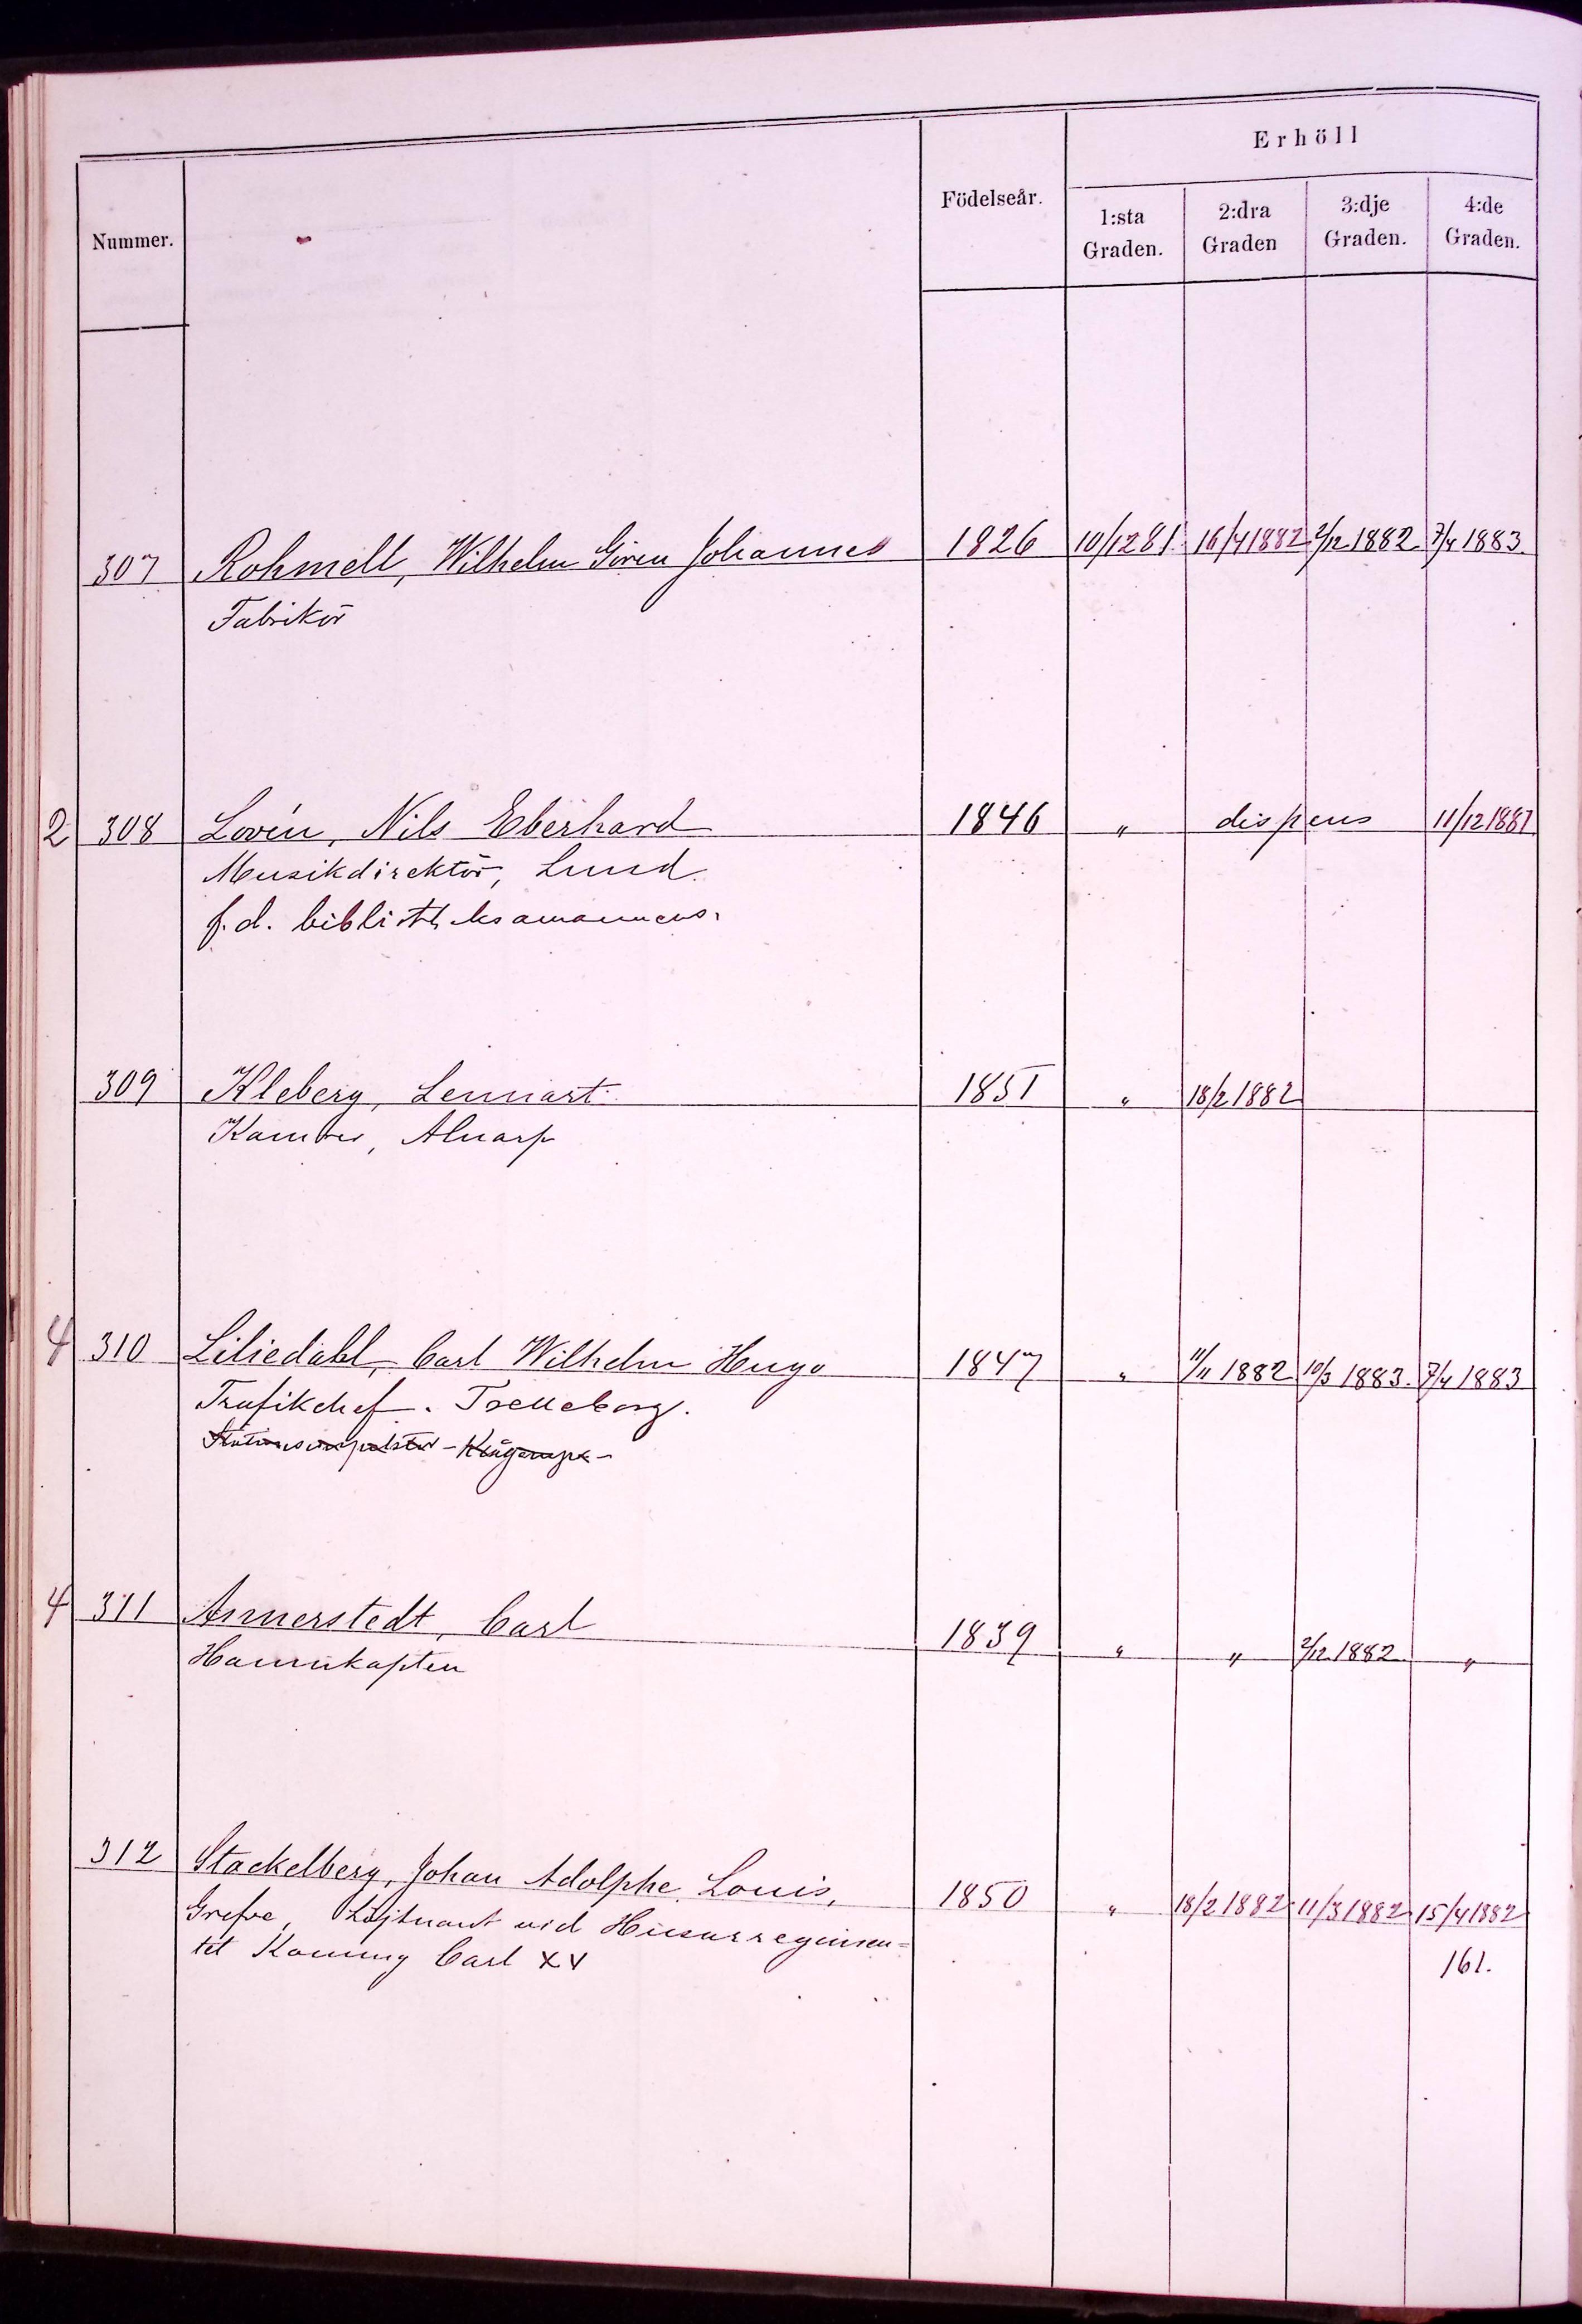 Erhöll
Nummer.
Födelseår.
1:sta Graden.
2:dra Graden
3:dje Graden.
4:de Graden.
307 Rohmell, Wilhelm Gören Johannes 1826 10/12 81. 16/4 1882 2/12 1882 7/4 1883.
Fabrikör
2 308 Lovén, Nils Eberhard 1846 " dispens 11/12 1881
Musikdirektör, Lund.
f.d. biblioteksamanuens.
309 Kleberg, Lennart 1851 " 18/2 1882
Kamrer, Alnarp
4 310 Liliedahl, Carl Wilhelm Hugo 1847 " 11/11 1882 10/3 1883. 7/4 1883
Trafikchef. Trelleborg.
4 311 Annerstedt, Carl 1839 " " 2/12 1882 "
Hamnkapten
312 Stackelberg, Johan Adolphe Louis, 1850 " 18/2 1882 11/3 1882 15/4 1882
Grefve, Löjtnant vid Husarregimen=
tet Konung Carl XV 161.